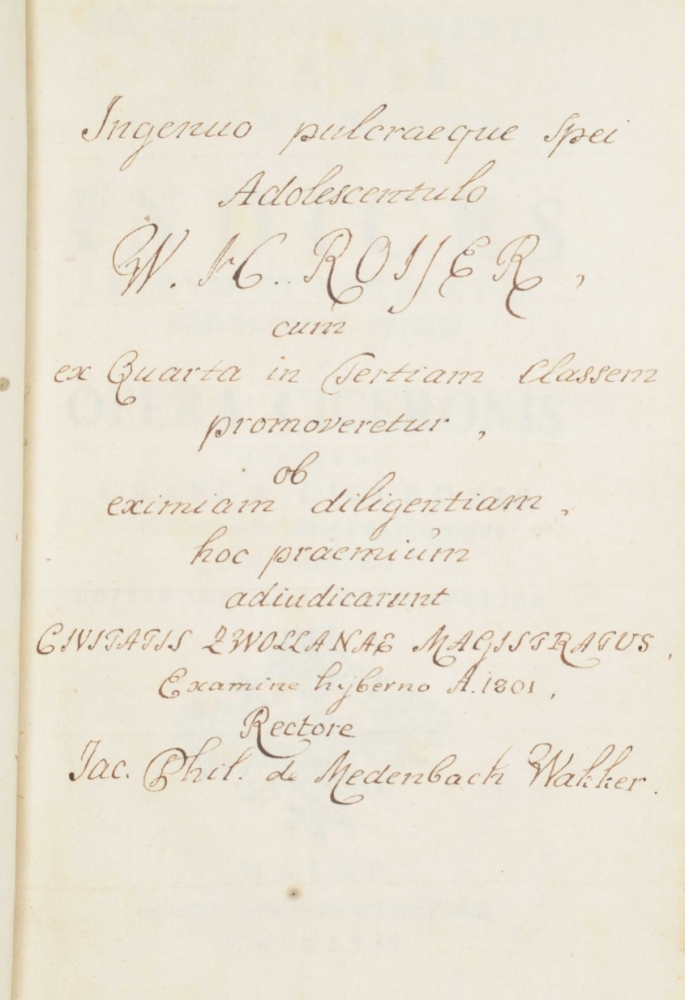 Ingenuo pulcraeque Spei
Adolescentulo
W. H. ROIJER,
cum
ex Quarta in Tertiam Classem
promoveretur,
ob
eximiam diligentiam,
hoc praemium
adiudicarunt
CIVITATIS ZWOLLANAE MAGISTRATUS,
Examine hyberno A. 1801,
Rectore
Jac. Phil. de Medenbach Wakker.